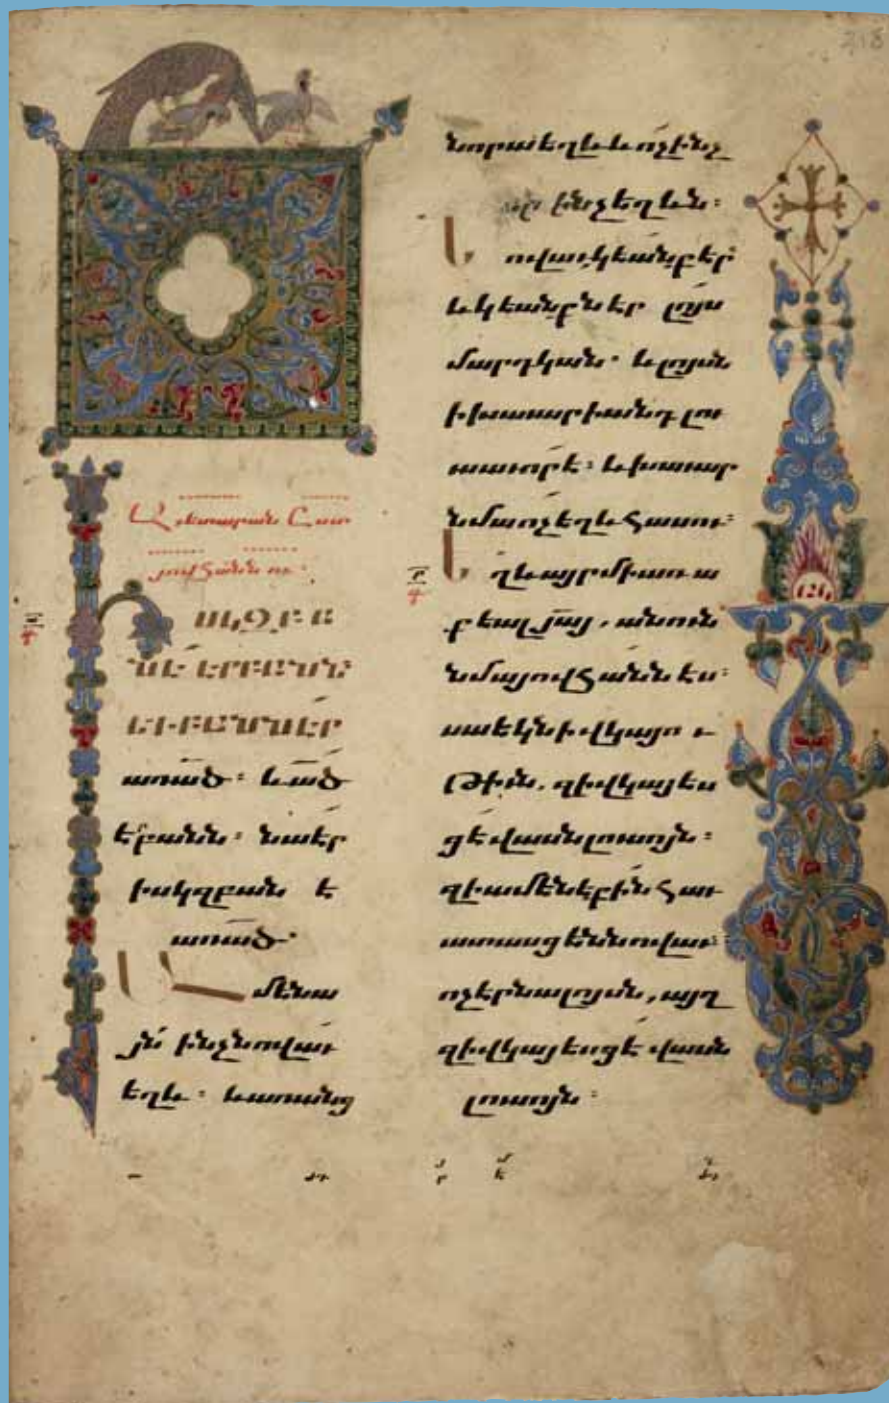 218
Աւետարան Ըստ
յովհաննու։
ԻՍԿԶԲԱ
ՆԷ ԷՐԲԱՆՆ
ԵՒԲԱՆՆԷՐ
առած։ և ած
էր բանն։ նա էր
իսկզբան է
առած։
Ամենա
յն ինչ նովաւ
եղև։ և առանց
նորա եղև և ոչինչ
որ ինչ եղևն։
Նովաւ կեանք էր
և կեանքն էր լոյս
մարդկան։ և լոյսն
ի խաւարի անդ լու
սաւոր է։ և խաւար
նմա ոչ եղև հասու։
Եղև այր մի առա
քեալ յայ, անուն
նմա յովհաննէս։
սա եկն ի վկայու
թիւն. զի վկայես
ցէ վասն լուսոյն։
զի ամենեքին հաւ
ատասցեն նովաւ։
ոչ էր նա լոյսն, այղ
զի վկայեսցէ վասն
լուսոյն։